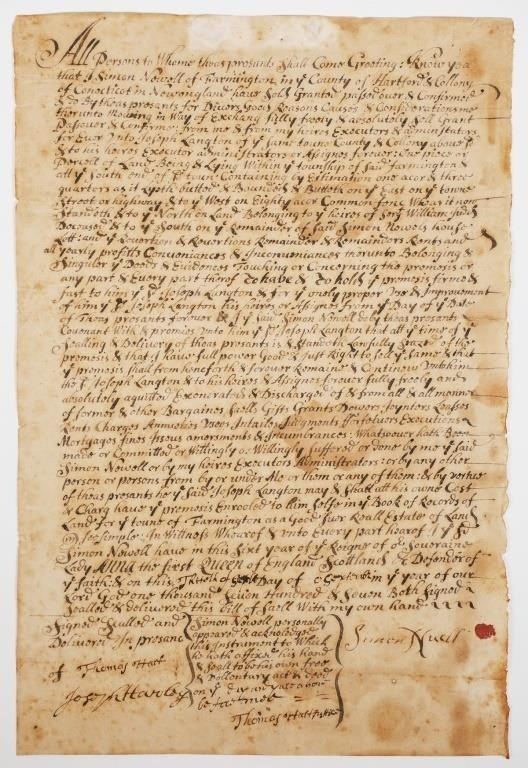 All Persons to Whome theas presants Shall Come Greeting: Know ye
that I Simon Nowell of Farmington in ye County of Hartford & Collony
of Conecticot in Newengland have Sold Granted passed over & Confirmed
& do By theas presants for Divers Good Reasons Causes & Considerations me
therunto Moveing in Way of Exchang fully freely & absolutely Sell Grant
Passover & Confirme: from me & from my heires Executors & administrators
for Ever Unto Joseph Langton of ye Same towne County & Collony above sd
& to his heires Executors administrators or Assignes forever: One piece or
Percell of Land Being & Lying Within ye township of Said Farmington &
att ye South end of sd town Containing by Estimation one acor & three
quarters as it Lyeth butted & Bounded & Butteth on ye East on ye towne
Street or highway & to ye West on Eighty acor Common fenc Whear it now
Standeth & to ye North on Land Belonging to ye heires of Serg William Judd
Deceased & to ye South on ye Remainder of Said Simon Nowels house
Lott: and ye Revertion & Revertions Remainder & Remainders Rents and
all yearly profitts Conveniances & Inconveniances therunto Belonging &
Singuler ye Deeds & Evidences Touching or Concerning the premises or
any part & Every part therof To have & To hold ye premises firme &
fast to him ye sd Joseph Langton & for ye onely proper Use & improvement
of him ye sd Joseph Langton his heires or Assignes from ye Day of ye Date
of Theas presants forever & I ye Said Simon Nowell do by theas presants
Covenant With & promise Unto him ye sd Joseph Langton that att ye time of ye
Sealling & Delivery of theas presants is & Standeth Lawfully Seazed of the
premises & that I have full power Good & Just Right to sell ye Same & that
ye premises Shall from henceforth & forever Remaine & Continew Unto him
ye sd Joseph Langton & to his heires & Assignes forever fully freely and
absolutely aquitted Exonerated & Discharged of & from all & all manner
of former & other Bargaines Sells Gifts Grants Dowers Joynters Leasses
Rents Charges Annueties Uses Intailes Judgments forfetuers Executions
Mortgages fines Issues amersments & Incumbrances: Whatsoever hath Been
made or Committed or Willingly or Willingly Suffered or Done by me ye said
Simon Nowell or by my heires Executors Administrators: or by any other
person or persons from by or under Me or them or any of them: & by vertue
of theas presants he ye Said Joseph Langton may & Shall att his owne Cost
or Charg have ye premises Enrooled to him selfe in ye Book of Records of
Lands for ye towne of Farmington as a Good suer Reall Estate of Land
in fee simple In Wittness Whearof & Unto Every part hearof I ye sd
Simon Nowell have in this Sixt year of ye Reigne of or Soveraine
Lady ANNA the first QUEEN of England Scotland & Defender of
ye faith: & on this Day of in ye year of our
Lord God one thousand Seven Hundred & Seven Both Signed
Sealled & Delivered this bill of Saell With my own hand
Signed Sealled and
Delivered In presanc
of Thomas Hart
Joseph Hawley
Simon Nowell personally
appeared & acknoledged
this Instrument to Which
he hath affixed his hand
& Seall to be his own free
& vollentary act & deed
on ye day & date above
before mee
Thomas Hart Justice
Simon Nuell